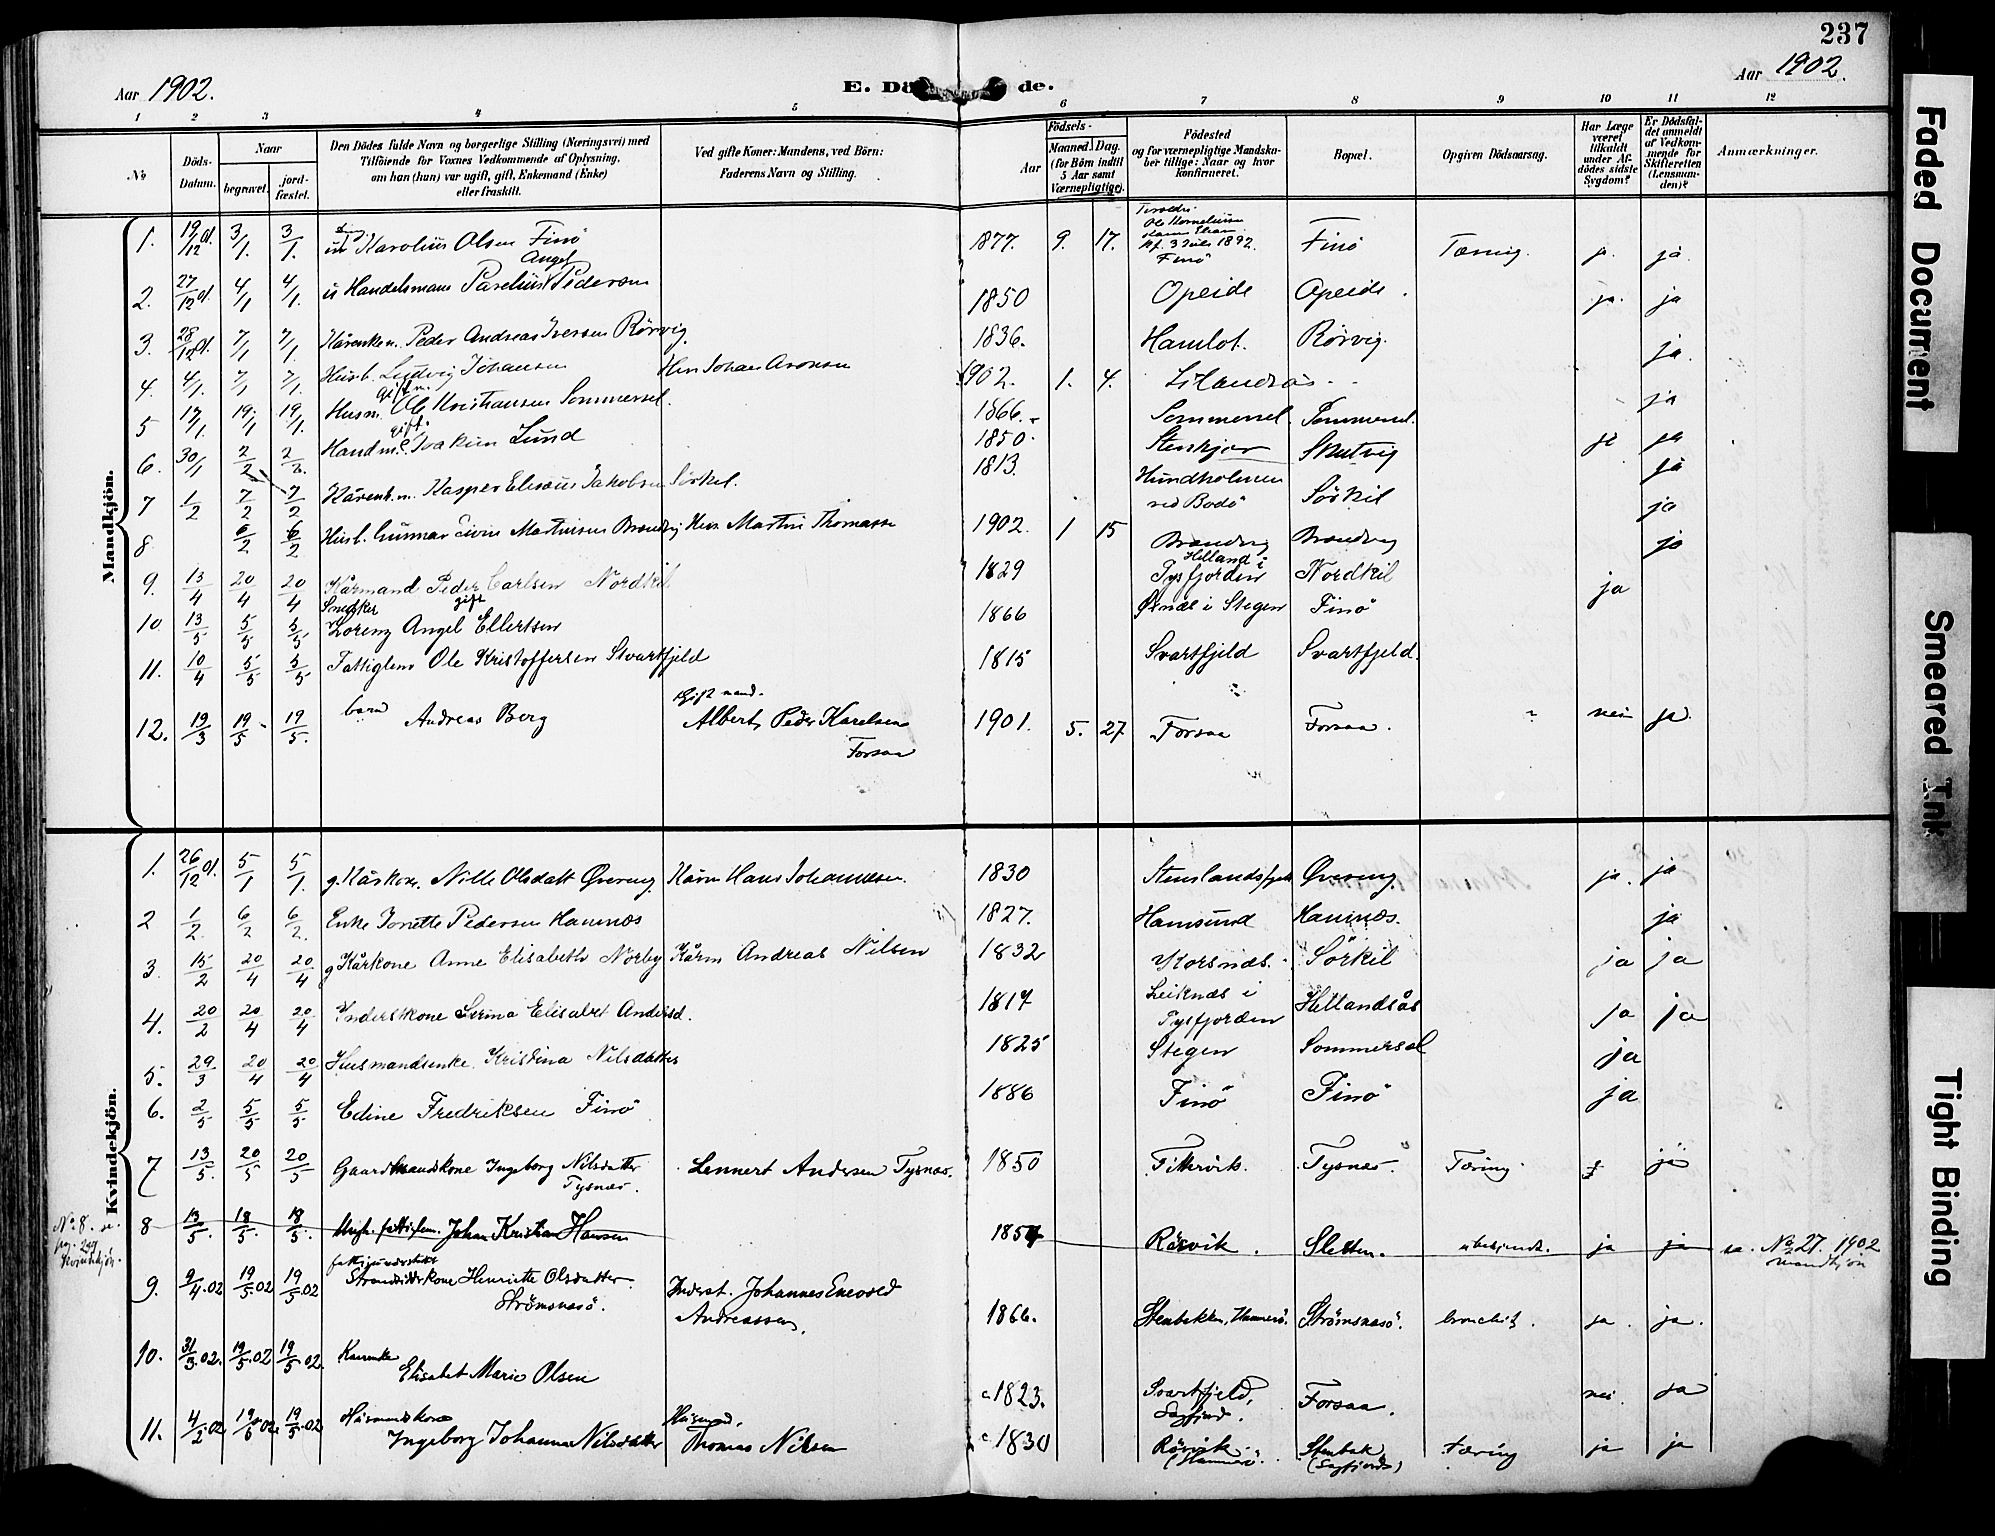 237
Aar 1902.
E. Dö de.
Aar 1902.
1 2 3 4 5 6 7 8 9 10 11 12
No
Döds-Datum.
Naar
begravet.
jord-fæstet.
Den Dödes fulde Navn og borgerlige Stilling (Næringsvei) med
Tilföiende for Voxnes Vedkommende af Oplysning,
om han (hun) var ugift, gift, Enkemand (Enke)
eller fraskilt.
Ved gifte Koner: Mandens, ved Börn:
Faderens Navn og Stilling.
Födsels-
Aar
Maaned. Dag.
(for Börn indtil
5 Aar samt
Værnepligtige).
Födested
og for værnepligtige Mandska-
ber tillige: Naar og hvor
konfirmeret.
Bopæl.
Opgiven Dödsaarsag.
Har Læge
været
tilkaldt
under Af-
dödes sidste
Sygdom?
Er Dödsfal-
det anmeldt
af Vedkom-
mende for
Skifteretten
(Lensman-
den)?
Anmærkninger.
Mandkjön.
1. 19/12 01. 3/1. 3/1. Karolius Olsen Finö 1877. 9. 17. Finö Finö Tæring. ja.
2. 27/12 01. 4/1 4/1. Handelsmand Parelius Angel Pedersen 1850 Opeide Opeide. ja. ja
3. 28/12 01. 7/1 7/1. Kårenkem. Peder Andreas Iversen Rörvig. 1836. Hamlot. Rörvig. ja.
4. 4/1. 7/1. 7/1. Husb. Ludvig Johansen Johan Aronsen 1902. 1. 4. ja
5 17/1. 19/1 19/1. Husm. gift m. Ole Kristiansen Sommersel. 1866. Sommersel. Sommersel. ja
6. 30/1 2/2 2/2. Handm. gift. Joakim Lund 1850. Stenkjær Skutvig ja ja
7 1/2 7/2 7/2 Kårenk.m. Kasper Elisæus Jakobsen Sörkil. 1813. Hundholmen ved Bodö Sörkil ja
8 6/2 6/2 Husb. Gunnar Martinsen Brandvig Martin Thomassen 1902. 1 15 Brandvig Brandvig ja
9. 13/4 20/4 20/4 Kårmand Peder Carlsen Nordkil 1829 Helland i Tysfjorden Nordkil ja
10. 13/5 5/5 5/5 Snedker gift Lorenz Angel Ellertsen 1866 i Stegen Finö
11. 10/4 5/5 5/5 Fattiglem Ole Kristoffersen Svartfjeld 1815 Svartfjeld Svartfjeld.
12. 19/3 19/5 19/5. barn Andreas Berg Gift mand. Albert Peder Karelsen Forsaa 1901. 5. 27 Forsaa Forsaa. nei ja.
Kvindekjön.
1. 26/12 01. 5/1 5/1. g. Kårkone. Nille Olsdatt Övereng Kårm Hans Johannesen. 1830 Övereng ja. ja
2 1/2. 6/2 6/2. Enke Jonette Pedersen Kannæs 1827. Hamsund Kannæs. ja
3. 15/2 20/4 20/4 g. Kårkone Anne Elisabeth Norby Kårm Andreas Nilsen 1832 Korsnæs. Sörkil ja ja
4. 20/2 20/4 20/4 Inderstkone Serina Elisabet Andersd. 1817 Leiknæs i Tysfjorden Hellandsås ja ja
5. 29/3 20/4 20/4 Husmandsenke. Kristina Nilsdatter 1825 Stegen Sommersel ja
6. 2/5 5/5 5/5 Edine Fredriksen Finö 1886 Finö Finö ja
7 13/5. 20/5 20/5 Gaardmandskone Ingeborg Nilsdatter Tysnæs. Lennert Andersen Tysnæs. 1850 Tysnæs. Tæring. ja
No 8. se. pag. Kvindkjön.
8 13/5. 18/5. 18/5. Johan Kristian Hansen 1854 Rörvik. Sletten. ubekjendt. ja ja se. No 27. 1902 Mandkjön
9. 9/4.02 19/5.02 19/5.02 Strandsidderkone Henriette Olsdatter Strömsnæsö. Inderst. Johannes Enevold Andreassen. 1866. Stenbakken, Hamerö. Strömsnæsö. bronchit. ja. ja.
10. 31/3.02. 19/5.02 19/5.02. Elisabet Marie Olsen c 1823. Svartfjeld, Sagfjord. Forsaa. nei. ja
11. 4/2.02 19/5.02. 19/5.02 Husmandskone Ingeborg Johanna Nilsdatter Husmand. Thomas Nilsen c 1830 Rörvik (Hammerö). Stenbak (Sagfjord) tæring ja ja
Faded Document
Smeared Ink
Tight Binding